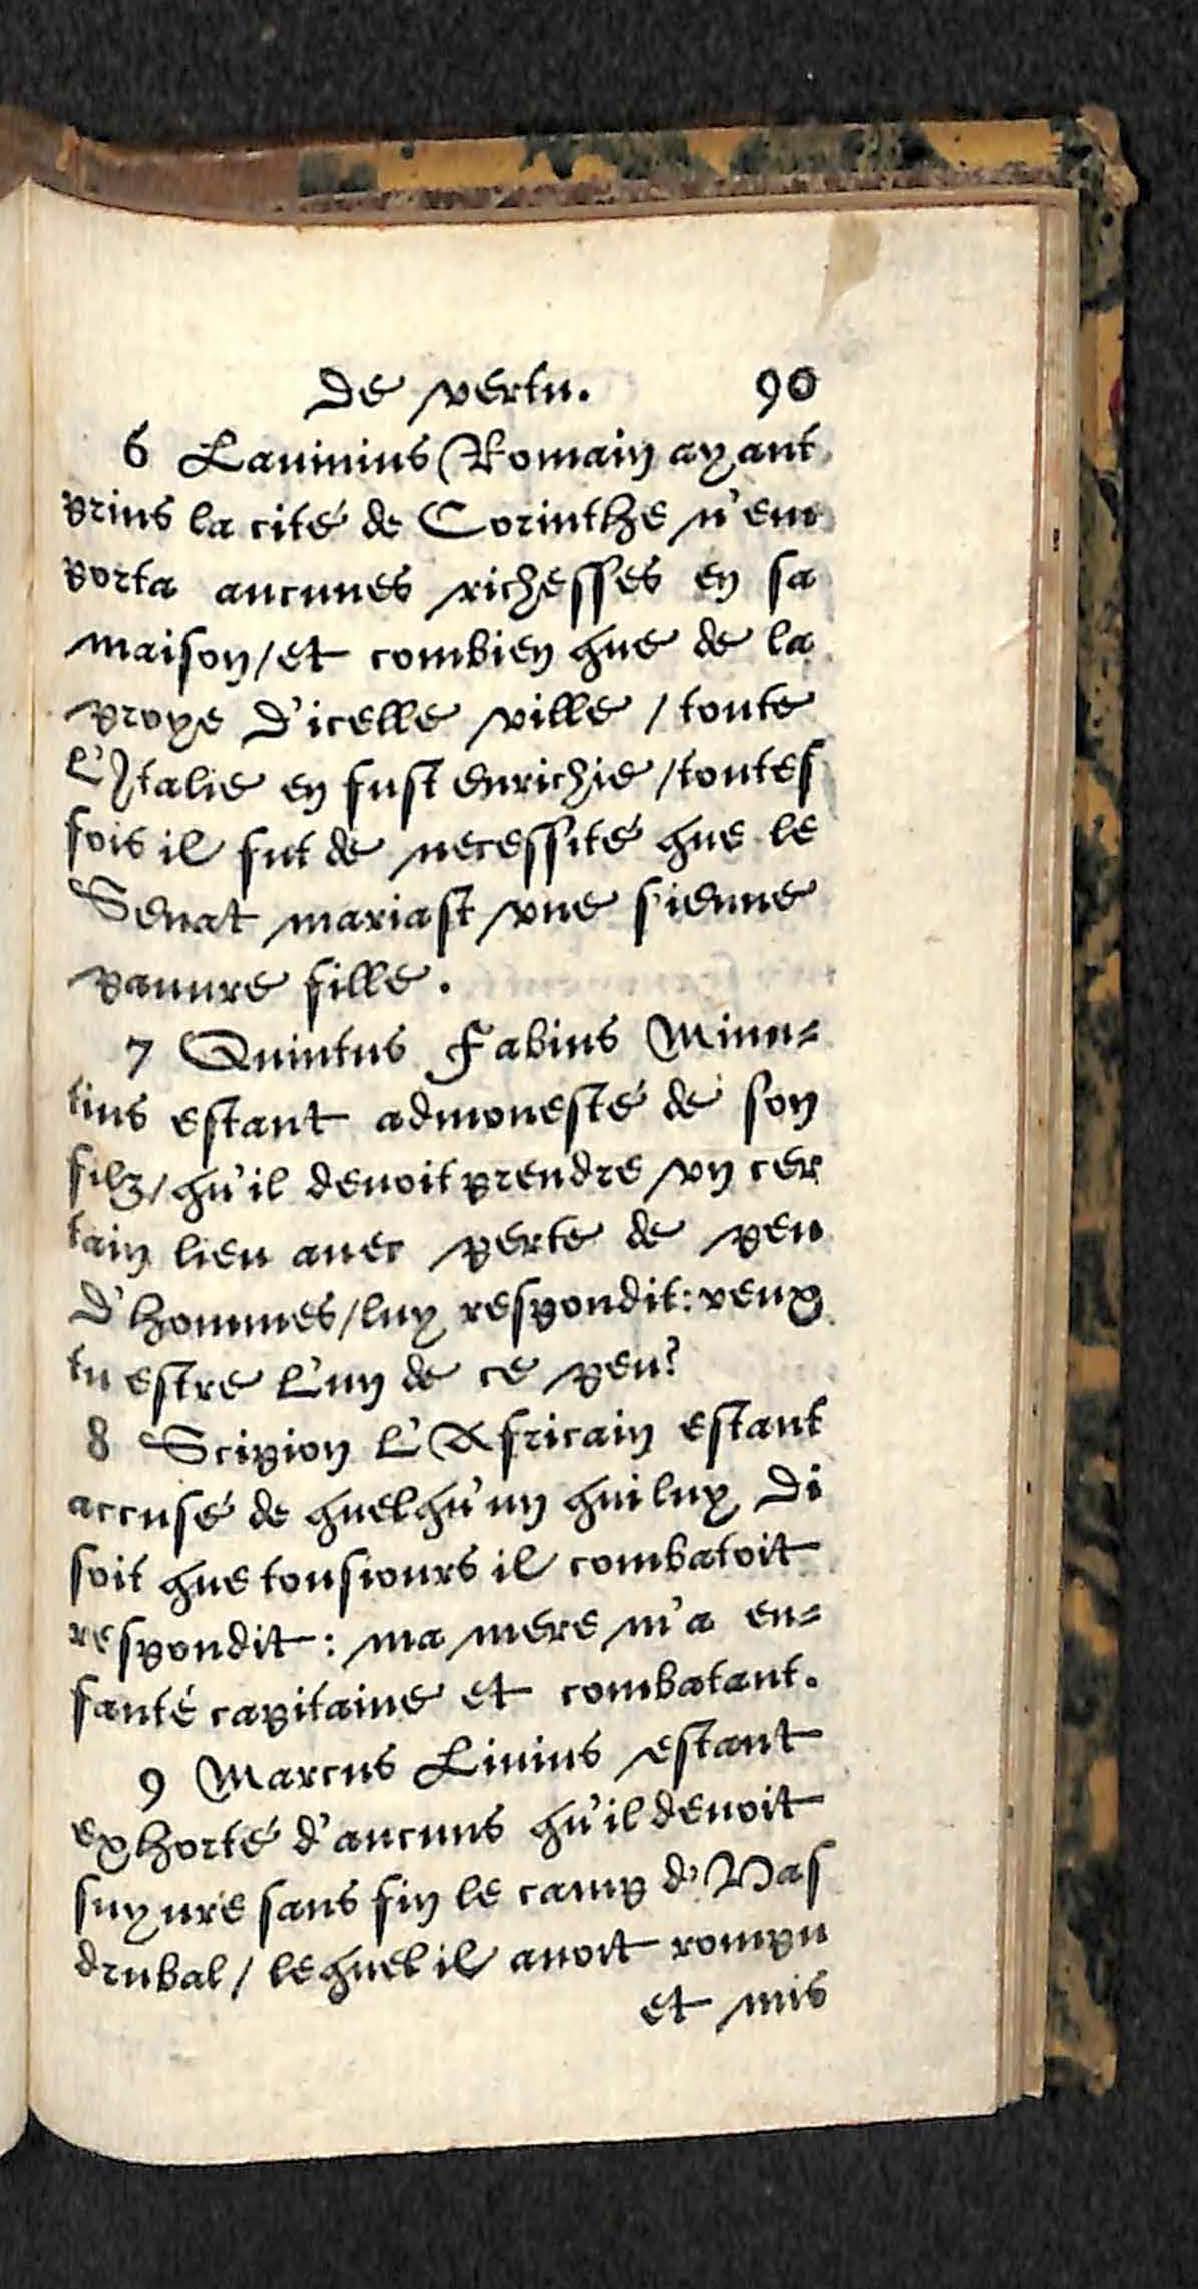 De vertu. 90
6 Lauinius Romain ayant
prins la cité de Corinthe n'em
porta aucunes richesses en sa
maison/et combien que de la
proye d'icelle ville / toute
l'Italie en fust enrichie /toutes
fois il fut de necessité que le
Senat mariast vne sienne
pauure fille.
7 Quintus Fabius Minu-
tius estant admonesté de son
filz/qu'il deuoit prendre vn cer
tain lieu auec perte de peu
d'hommes/luy respondit: veux
tu estre l'un de ce peu?
8 Scipion l'Africain estant
accusé de quelqu'un qui luy di
soit que tousiours il combatoit
respondit: ma mere m'a en-
fanté capitaine et combatant.
9 Marcus Liuius estant
exhorté d'aucuns qu'il deuoit
suyure sans fin le camp d'Has
drubal/ lequel il auoit rompu
et mis